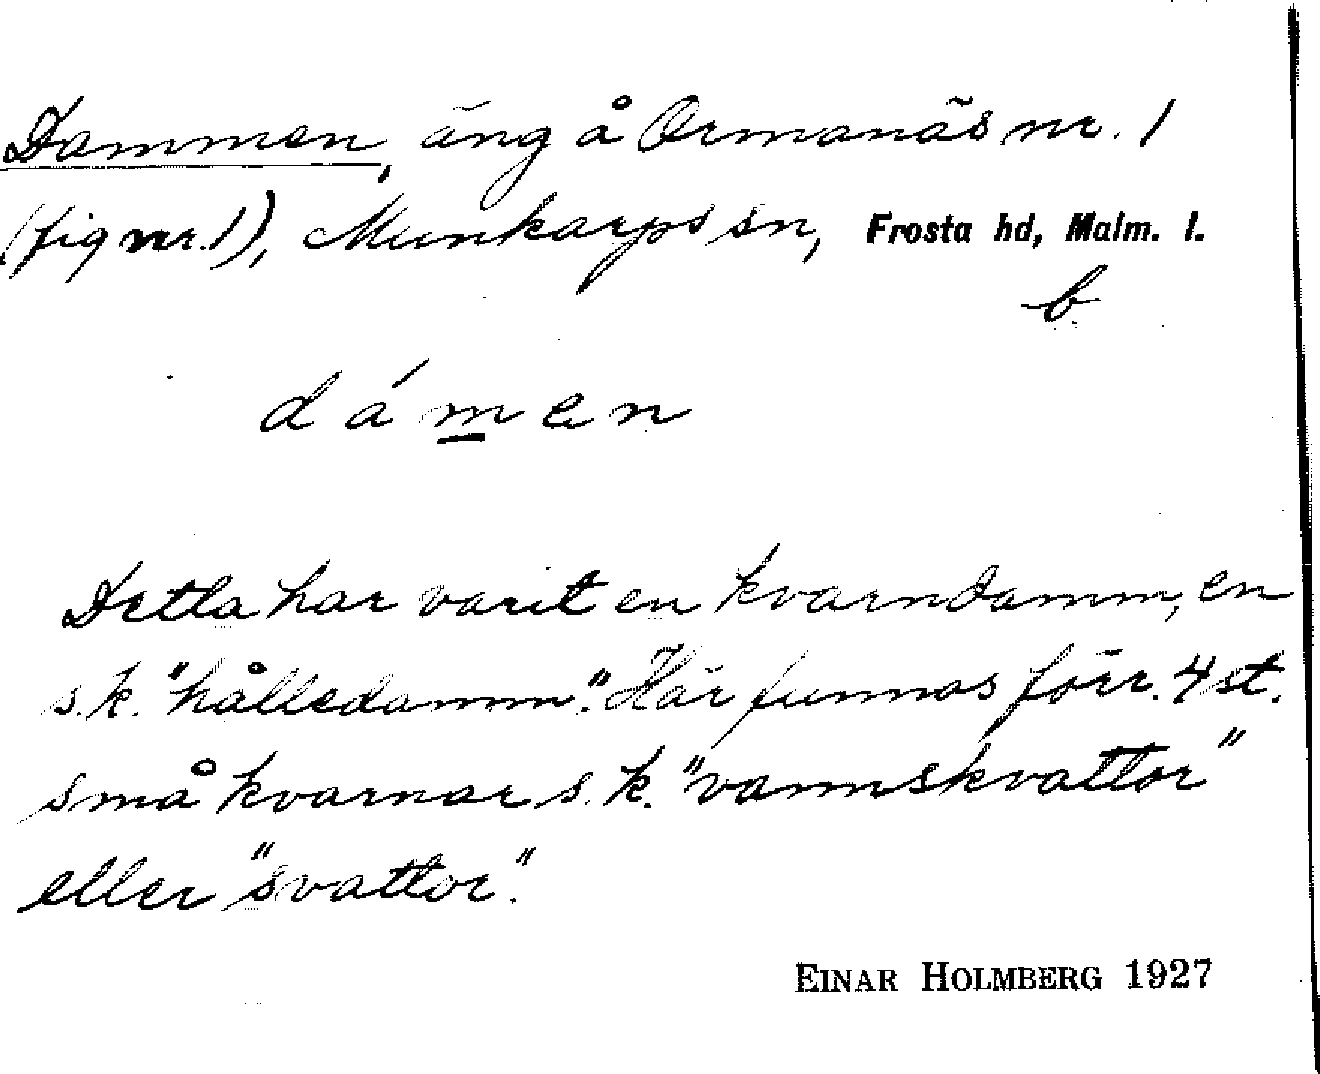 Dammen, äng å Ormanäs nr. 1
(fig nr. 1), Munkarps sn, Frosta hd, Malm. l.
b
dámen
Detta har varit en kvarndamm, en
s.k. "hålledamm". Här funnos förr. 4 st.
små kvarnar s.k. "vannskvattor"
eller "svattor".
EINAR HOLMBERG 1927